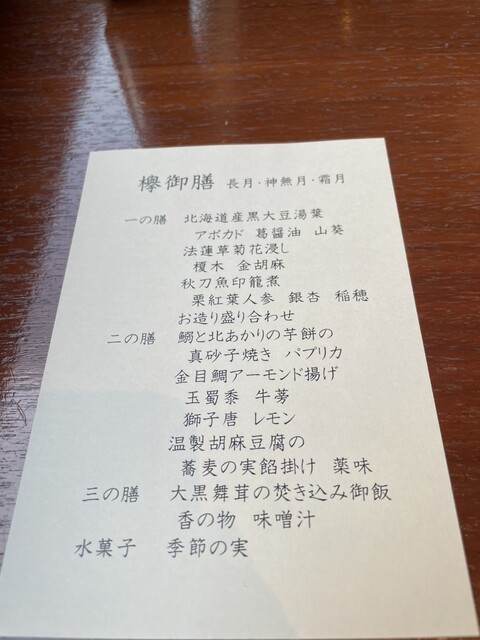 欅御膳 長月・神無月・霜月
一の膳 北海道産黒大豆湯葉
アボカド 葛醤油 山葵
法蓮草菊花浸し
榎木 金胡麻
秋刀魚印籠煮
栗紅葉人参 銀杏 稲穂
お造り盛り合わせ
二の膳 鰯と北あかりの芋餅の
真砂子焼き パプリカ
金目鯛アーモンド揚げ
玉蜀黍 牛蒡
獅子唐 レモン
温製胡麻豆腐の
蕎麦の実餡掛け 薬味
三の膳 大黒舞茸の焚き込み御飯
香の物 味噌汁
水菓子 季節の実